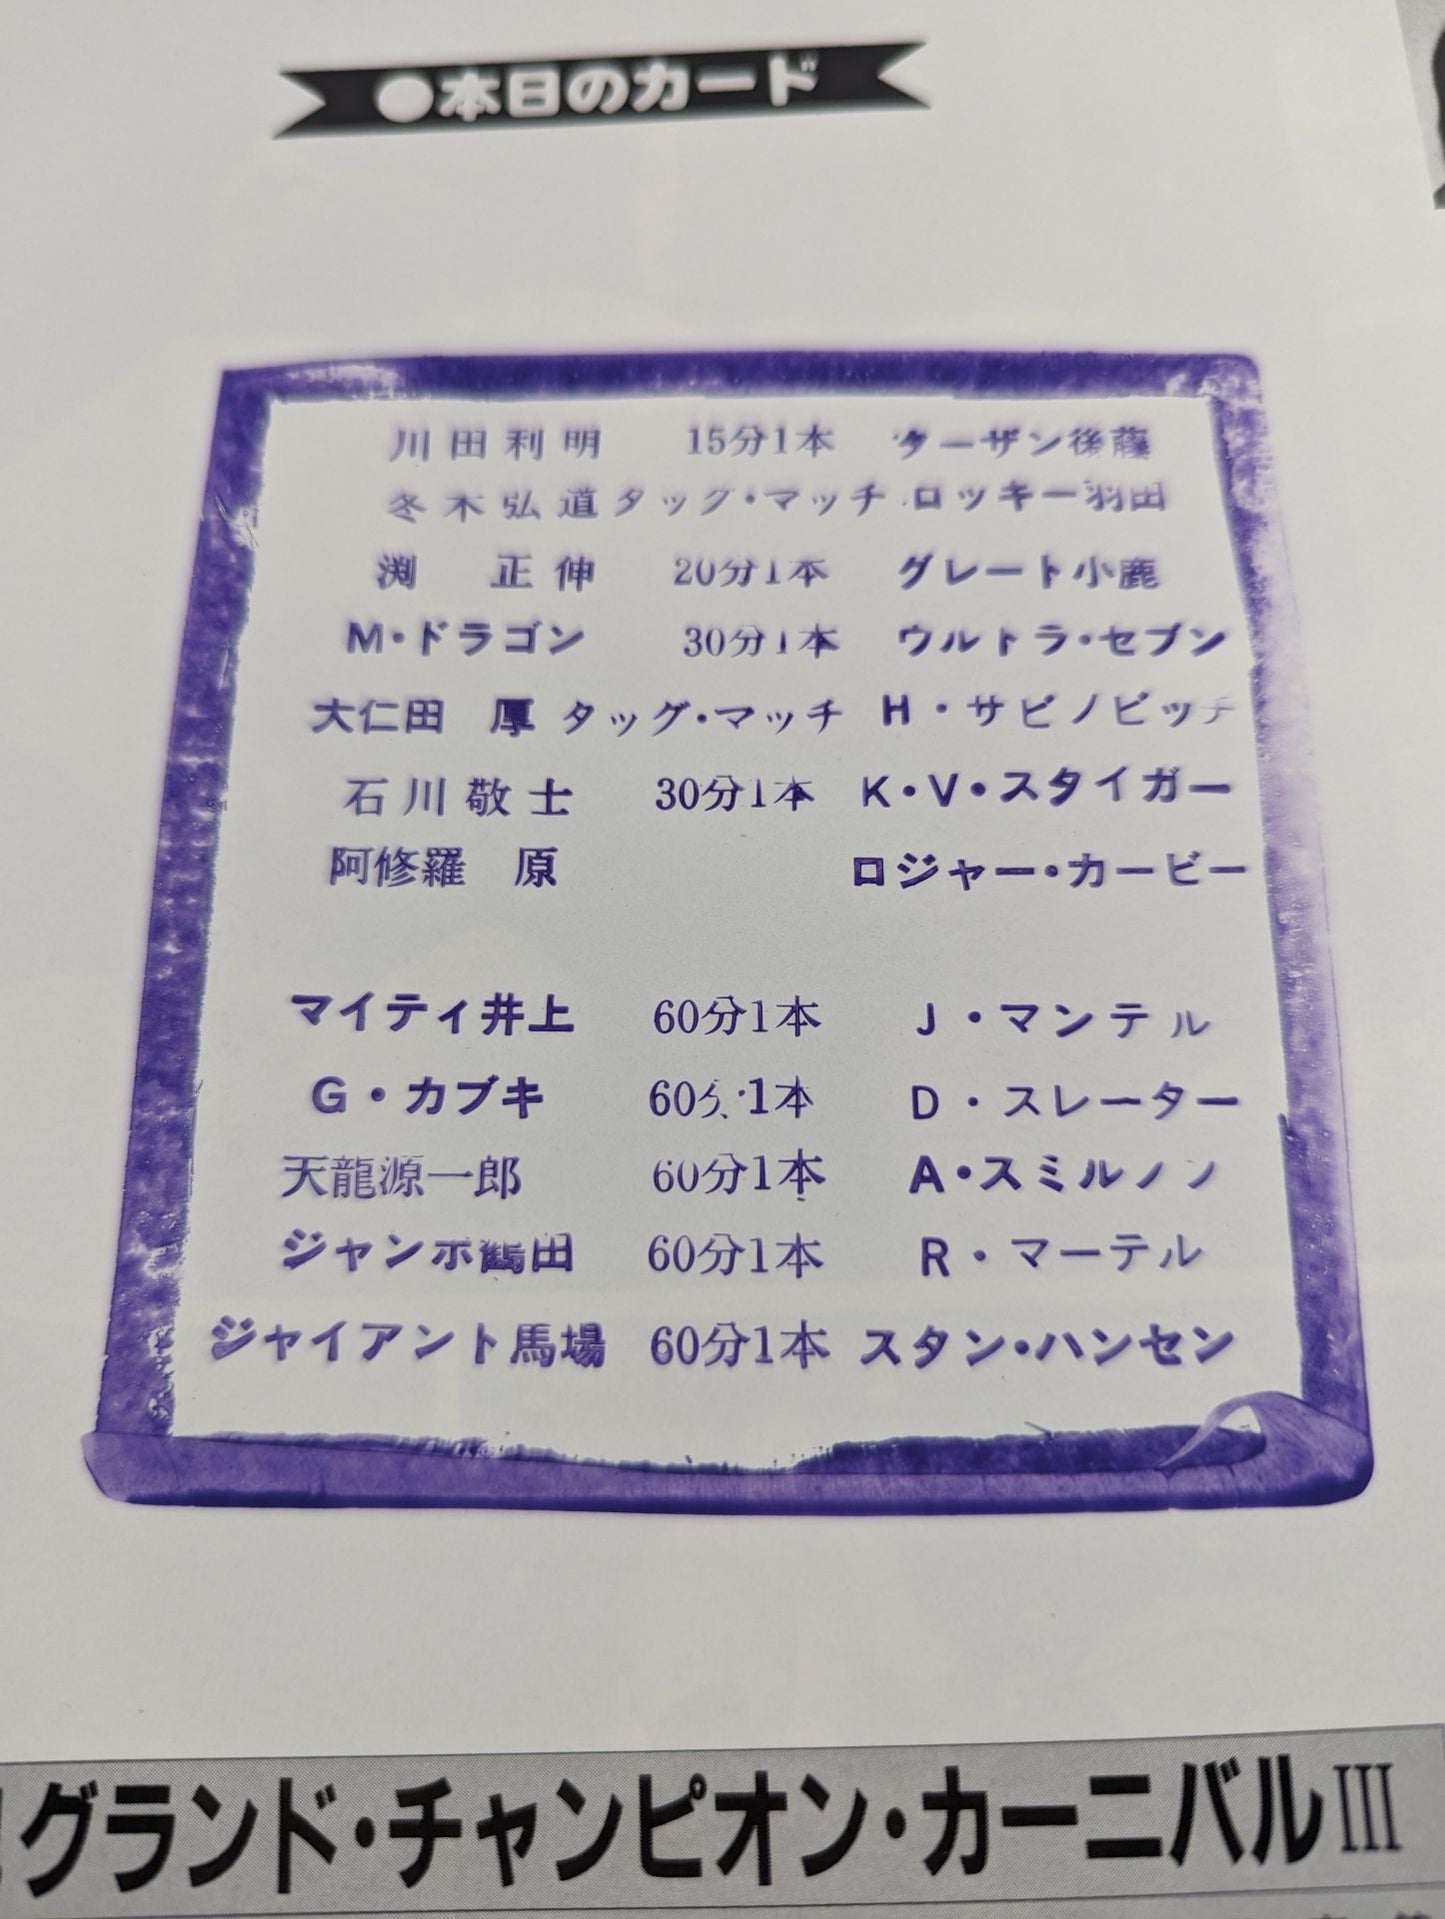 ●本日のカード
川田利明 15分1本 ターザン後藤
冬木弘道 タッグ・マッチ ロッキー羽田
渕 正伸 20分1本 グレート小鹿
M・ドラゴン 30分1本 ウルトラ・セブン
大仁田 厚 タッグ・マッチ H・サビノビッチ
石川敬士 30分1本 K・V・スタイガー
阿修羅 原 ロジャー・カービー
マイティ井上 60分1本 J・マンテル
G・カブキ 60分1本 D・スレーター
天龍源一郎 60分1本 A・スミルノン
ジャンボ鶴田 60分1本 R・マーテル
ジャイアント馬場 60分1本 スタン・ハンセン
グランド・チャンピオン・カーニバルIII